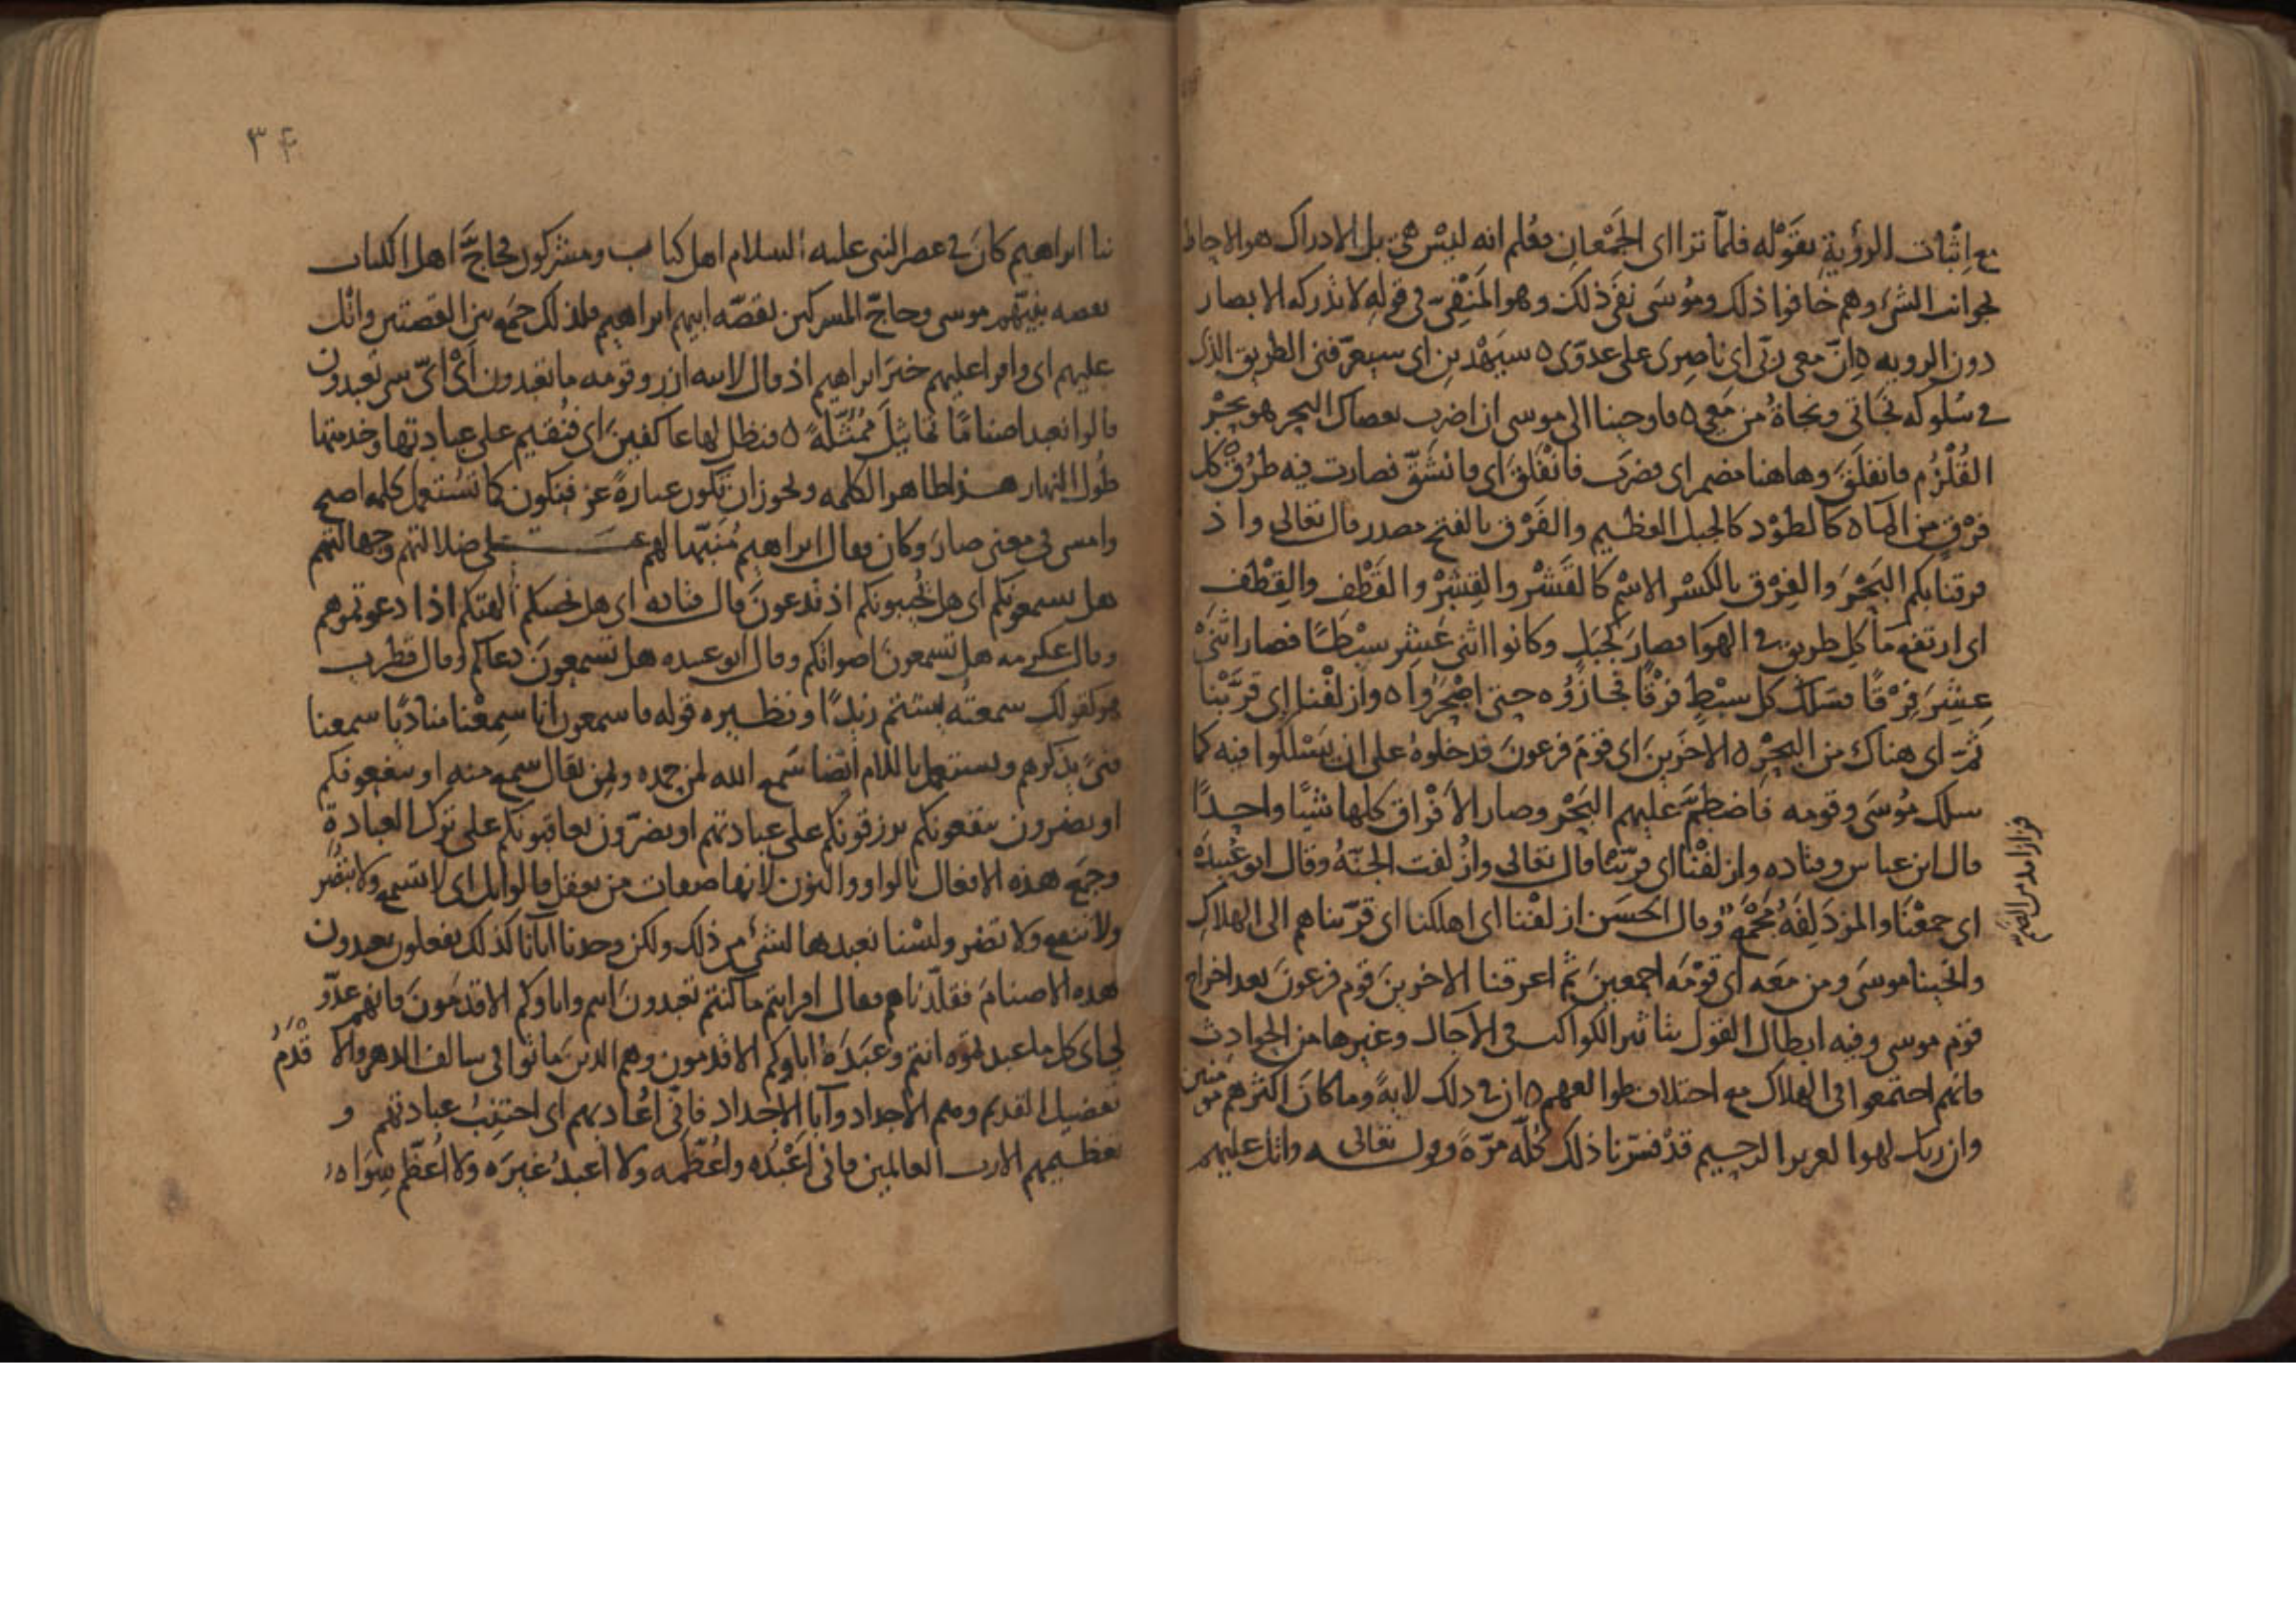 مع اثبات الرؤية بقوله فلما ترااى الجمعان فعلم انه ليس هى بل الادراك هو الاحاطة
بجوانب الشئ وهم خافوا ذلك وموسى نفى ذلك وهو المنفى فى قوله لا تدركه الابصار
دون الرويه ه ان معى ربى اى ناصرى على عدوى ه سيهدين اى سيعرفنى الطريق الذى
فى سلوكه نجاتى ونجاة من معى ه فاوحينا الى موسى ان اضرب بعصاك البحر هو بحر
القلزم فانفلق وهاهنا مضمر اى فضرب فانفلق اى فانشق فصارت فيه طرق كل
فرق من الماء كالطود كالجبل العظيم والفرق بالفتح مصدر قال تعالى واذ
فرقنا بكم البحر والفرق بالكسر الاسم كالقشر والقشر والقطف والقطف
اى ارتفع ما كل طريق فى الهوا فصار كجبل وكانوا اثنى عشر سبطا فصار اثنى
عشر فرقا فسلك كل سبط فرقا فجازوه حتى اصحروا ه وازلفنا اى قربنا
ثم اى هناك من البحر ه الاخرين اى قوم فرعون قد خلوه على ان يسلكوا فيه كما
سلك موسى وقومه فاضطم عليهم البحر وصار الافراق كلها شيا واحدا
قال ابن عباس وقتاده وازلفنا اى قربنا قال تعالى وازلفت الجنة وقال ابو عبيدة
اى جمعنا والمزدلفة مجمع وقال الحسن ازلفنا اى اهلكنا اى قربناهم الى الهلاك
وانجينا موسى ومن معه اى قومه اجمعين ثم اغرقنا الاخرين قوم فرعون بعد اخراج
قوم موسى وفيه ابطال القول بتاثير الكواكب فى الآجال وغيرها من الحوادث
فانهم اجتمعوا فى الهلاك مع اختلاف طوالعهم ه ان فى ذلك لاية وما كان اكثرهم مومنين
وان ربك لهو العزيز الرحيم قد فسرنا ذلك كله مرة وقوله تعالى واتل عليهم
نبا ابراهيم كان فى عصر النبى عليه السلام اهل كتاب ومشركون فحاج اهل الكتاب
بقصه نبيهم موسى وحاج المشركين بقصه ابيهم ابراهيم فلذلك جمع بين القصتين واتل
عليهم اى واقرا عليهم خبر ابراهيم اذ قال لابيه ازر وقومه ما تعبدون اى اى شى تعبدون
قالوا نعبد اصناما تماثيل ممثلة ه فنظل لها عاكفين اى فنقيم على عبادتها وخدمتها
طول النهار هذا ظاهر الكلمه ويجوز ان تكون عبارة عن فنكون كما تستعمل كلمه اصبح
وامسى فى معنى صار وكان فقال ابراهيم منبها لهم على ضلالتهم وجهالتهم
هل يسمعونكم اى هل يجيبونكم اذ تدعون قال قتاده اى هل تجيبكم الهتكم اذا دعوتموهم
وقال عكرمه هل تسمعون اصواتكم وقال ابو عبيده هل تسمعون دعاكم وقال قطرب
هو كقولك سمعته يشتم زيدا ونظيره قوله فاسمعون اننا سمعنا مناديا سمعنا
فتى يذكرهم ويستعمل باللام ايضا سمع الله لمن حمده ولمن يقال سمع منه او ينفعونكم
او يضرون ينفعونكم يرزقونكم على عبادتهم او يضرون يعاقبونكم على ترك العبادة
وجمع هذه الافعال بالواو والنون لانها صفات من يعقل قالوا بل اى لا تسمع ولا تبصر
ولا تنفع ولا تضر ولسنا نعبدها لشئ من ذلك ولكن وجدنا اباءنا كذلك يفعلون يعبدون
هذه الاصنام فقلدناهم فقال افرايتم ما كنتم تعبدون انتم واباوكم الاقدمون فانهم عدو
لى اى كل ما عبدتموه انتم وعبده اباوكم الاقدمون وهم الذين ماتوا فى سالف الدهر والاقدم
تفضيل القديم وهم الاجداد وآبا الاجداد فانى اعاديهم اى اجتنب عبادتهم و
تعظيمهم الا رب العالمين فانى اعبده واعظمه ولا اعبد غيره ولا اعظم سواه